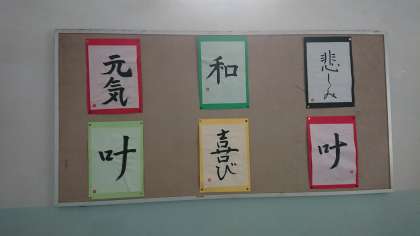 元気
和
悲しみ
叶
喜び
叶